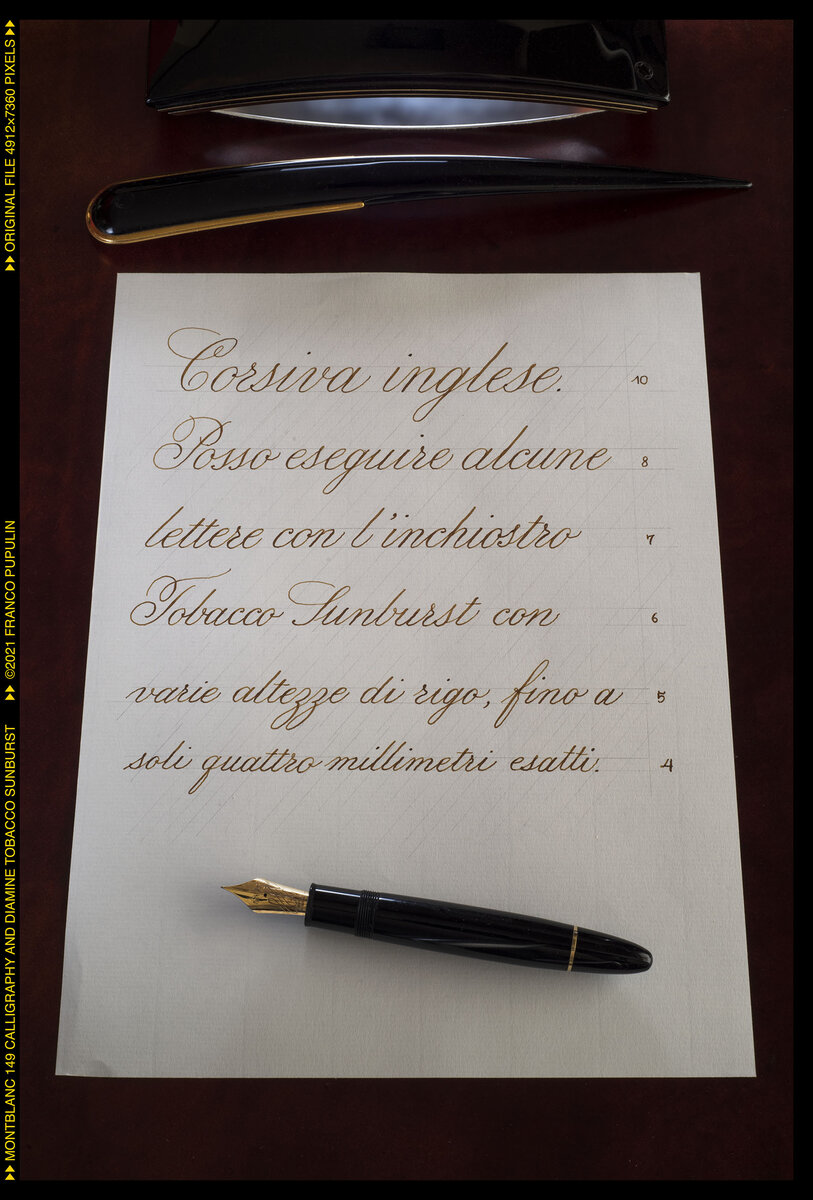 Corsiva inglese. 10
Posso eseguire alcune 8
lettere con l'inchiostro 7
Tobacco Sunburst con 6
varie altezze di rigo, fino a 5
soli quattro millimetri esatti. 4
MONTBLANC 149 CALLIGRAPHY AND DIAMINE TOBACCO SUNBURST ©2021 FRANCO PUPULIN ORIGINAL FILE 4912×7360 PIXELS